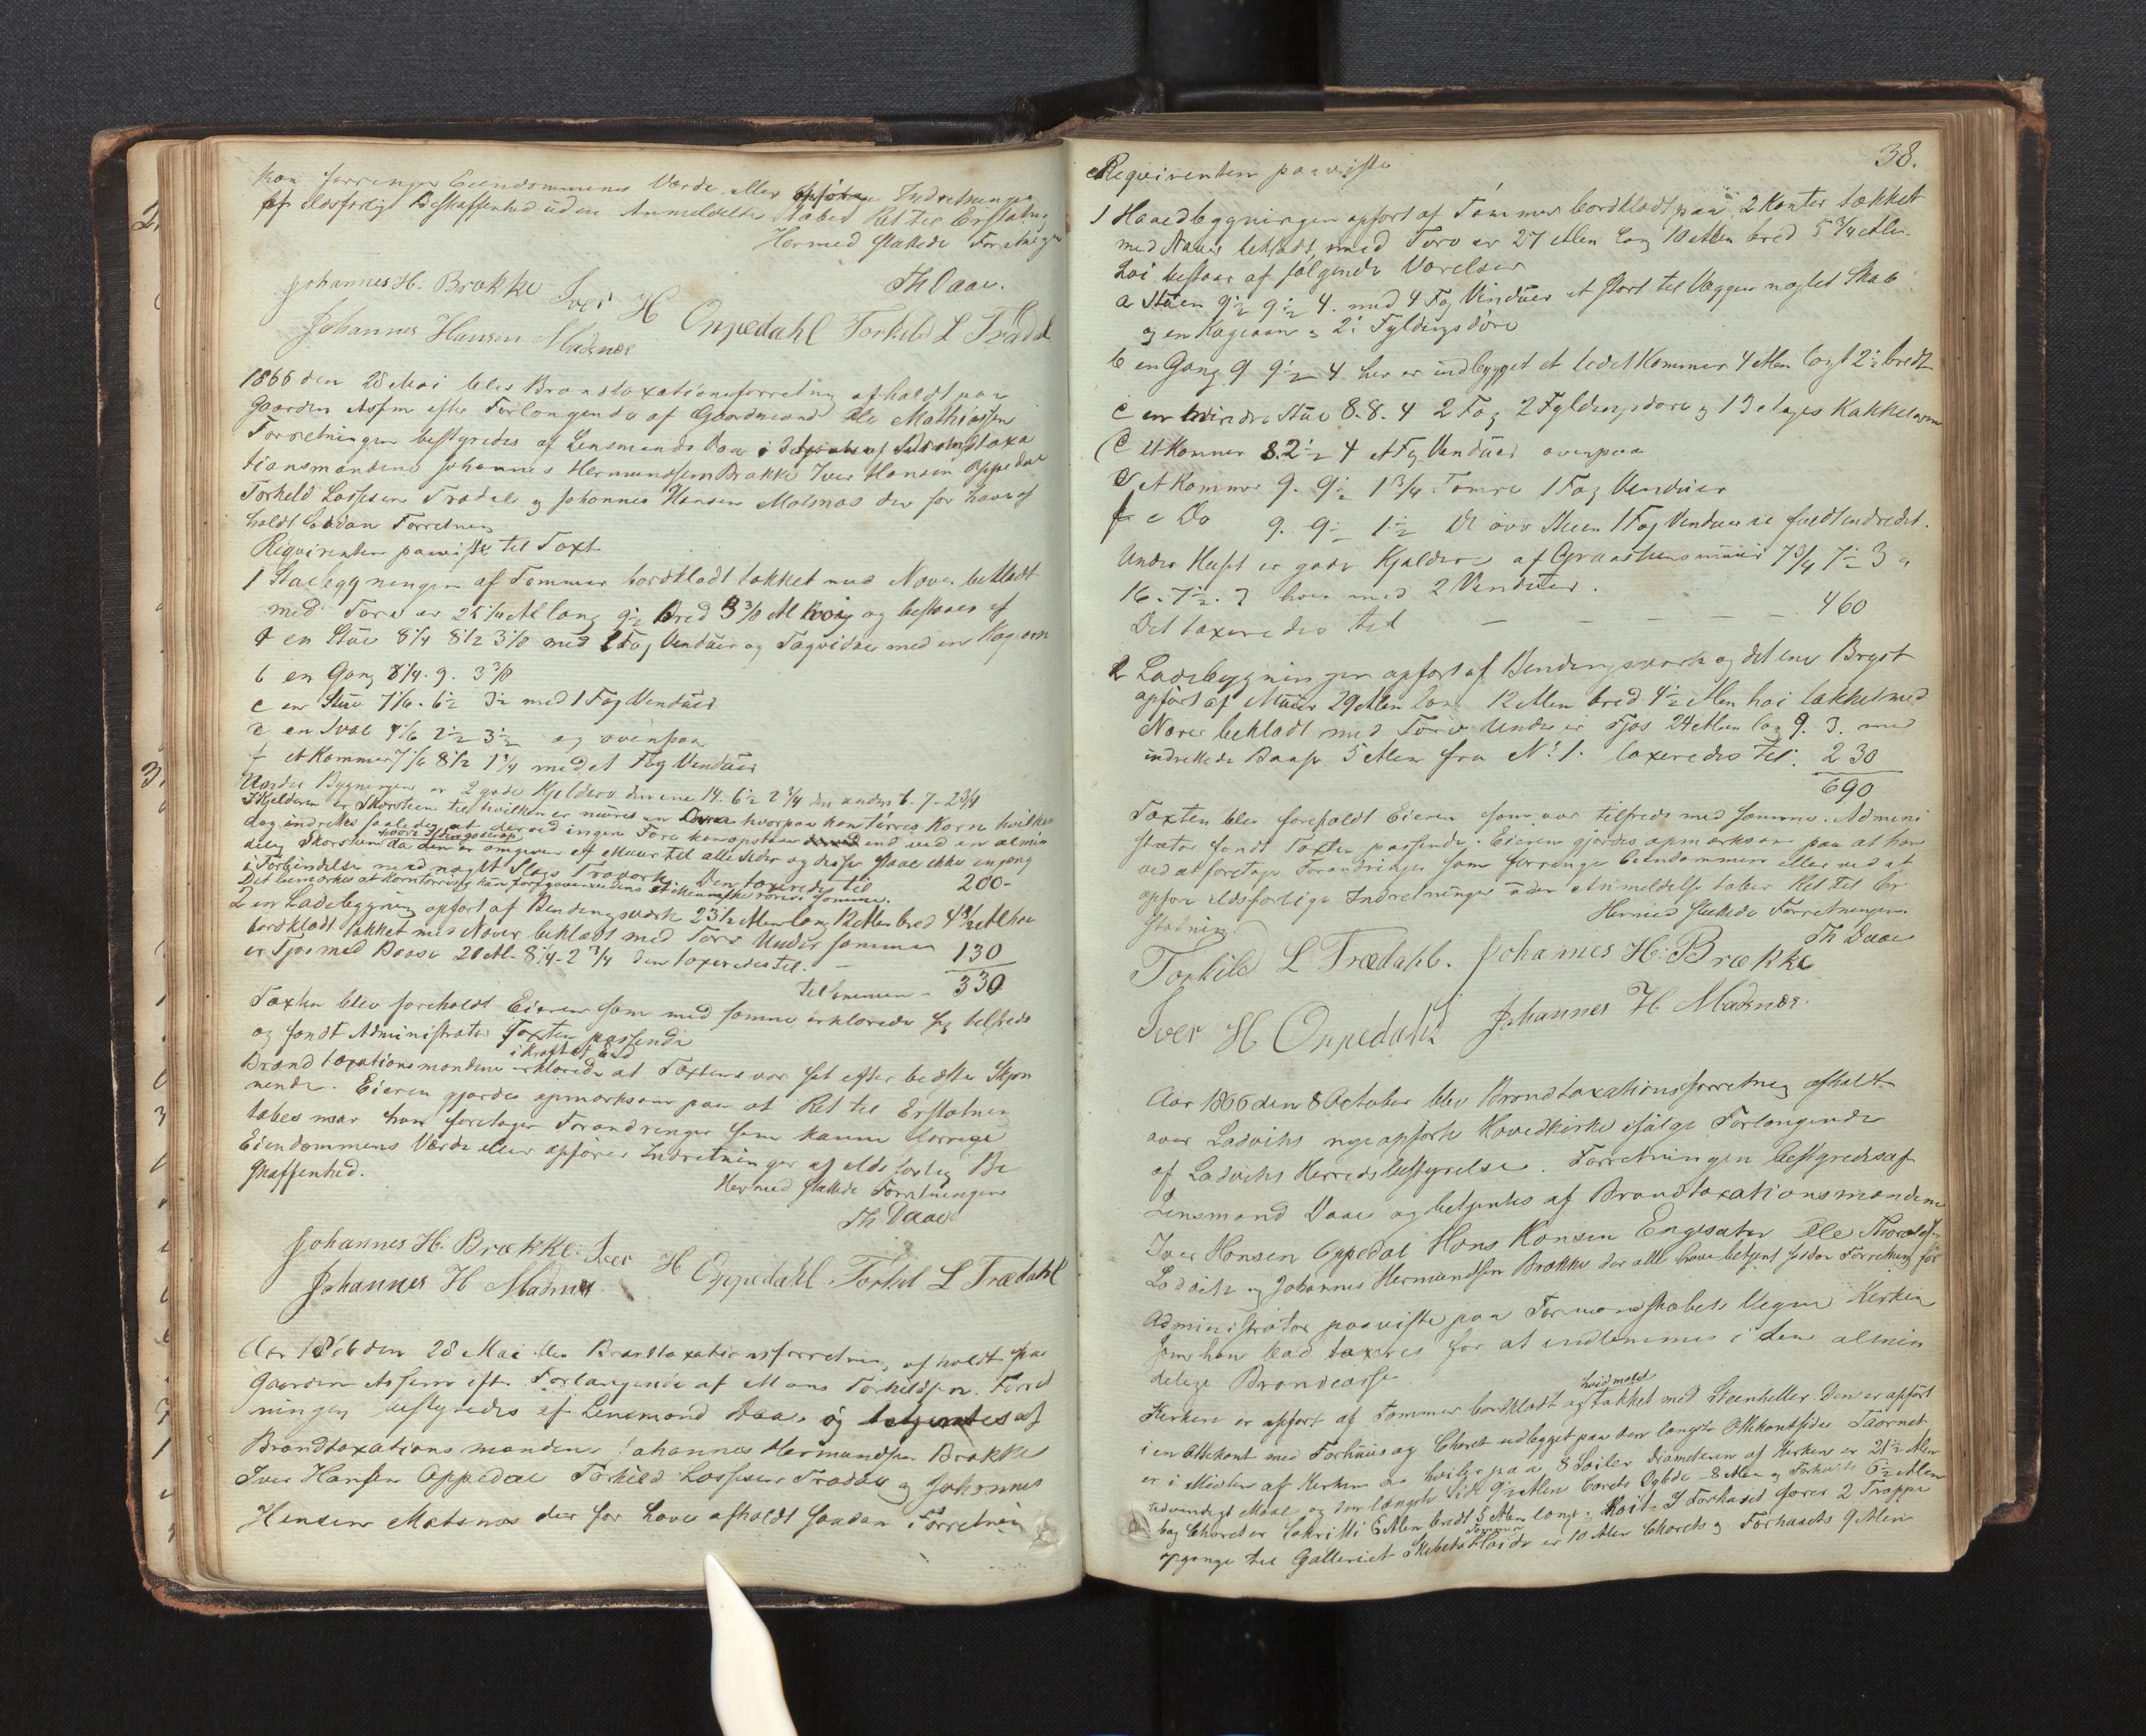 kan forringe Eiendommenes Værde eller opføre Indretninger
af ildsfarlig Beskaffenhed uden Anmeldelse tabes Ret til Erstatning
Hermed sluttede Forretningen
Th Daae.
Johannes H. Brække Iver H Oppedahl Torkild L Trædal
Johannes Hansen Madsnæs
1866 den 28 Mai blev Brandtaxationsforretning afholdt paa
Gaarden efter Forlangende af Gaardmand Ole Mathiassen
Forretningen bestyredes af Lensmand Daae
tionsmændene Johannes Hermundsen Brække Iver Hansen Oppedal
Torkild Lassesen Trædal og Johannes Hansen Matsnæs der før have af
holdt saadan Forretning
Reqvirenten paaviste til Taxt
1 Stuebygningen af Tømmer bordklædt takket med Næver beklædt
med Torv er 25 1/4 Al lang 9 1/2 bred 3 3/8 Al høi og bestaaer af
a en Stue 8 1/4 8 1/2 3 3/8 med 2 Fag Vinduer og med en Kagovn
b en Gang 8 1/4. 9. 3 3/8
c en Stue 7 1/6. 6 1/2 3 1/2 med 1 Fag Vinduer
e en Sval 7 1/6 2 1/2 3 1/2 og ovenpaa
f et Kammer 7 1/6 8 1/2 1 3/4 med et Fag Vinduer
Under Bygningen er 2 gode Kjeldere den ene 14. 6 1/2 2 3/4 den anden 6. 7- 2 3/4
I Kjelderen er Skorsteen til hvilken er muret en hvorpaa kan tørres Korn hvilken
dog indrettes saaledes at derved ingen Fare kan opstaa end ved en almin
delig Skorsteen da den er omgiven af Muur til alle Sider og disse staae ikke engang
i Forbindelse med noget Slags Træværk. Den taxeredes til 200-
2 en Ladebygning opført af Bendingsværk 23 1/2 Alen lang 12 Alen bred 4 1/2 Al høi
bordklædt takket med Næver beklædt med Torv Under sammen
er Fjøs med Baase 20 Al- 8 1/4- 2 3/4 den taxeredes til. - 130
Tilsammen - 330
Taxten blev foreholdt Eieren som med samme erklærede sig tilfreds
og fandt Administrator Taxten passende
i Kraft af Eed
Brandtaxationsmændene erklærede at Taxten var sat efter bedste Skjøn
nende. Eieren gjordes opmærksom paa at Ret til Erstatning
tabes naar han foretager Forandringer som kunne forringe
Eiendommens Værde eller opfører Indretninger af ildsfarlig Be
skaffenhed.
Hermed sluttede Forretningen
Th Daae
Johannes H. Brække. Iver H Oppedahl. Torkil L Trædahl
Johannes H Madsnæs
Aar 1866 den 28 Mai blev Brandtaxationsforretning afholdt paa
Gaarden efter Forlangende af Mons Torkildsen. Forret
ningen bestyredes af Lensmand Daae og betjentes af
Brandtaxationsmændene Johannes Hermundsen Brække
Iver Hansen Oppedal Torkild Lassesen Trædal og Johannes
Hansen Matsnæs der før have afholdt saadan Forretning
38.
Reqvirenten paaviste
1 Hovedbygningen opført af Tømmer bordklædt paa 2 Kanter takket
med Næver beklædt med Torv er 27 Alen lang 10 Alen bred 5 3/4 Alen
høi bestaar af følgende Værelser
a Stuen 9 1/2 9 1/2 4. med 4 Fag Vinduer et stort til Væggen naglet Skab
og en Kagovn og 2 Fyldingsdøre
b en Gang 9 9 1/2 4 her er indbygget et lidet Kammer 4 Alen langt 2 1/2 bredt
c en mindre Stue 8. 8. 4 2 Fag 2 Fyldingsdøre og 1 3 etages Kakkelovn
C et Kammer 8. 2 1/2 4 et Fag Vinduer ovenpaa
e et Kammer 9. 9 1/2 1 3/4 1 Fag Vinduer
f e Do 9. 9 1/2 1 1/2 over Stuen 1 Fag Vinduer
Under Huset er gode Kjældere af Graasteensmuur 7 3/4 7 1/2 3 og
16. 7 1/2. 3 hver med 2 Vinduer.
Det taxeredes til - - - - 460
2 Ladebygningen opført af Bendingsværk og det ene Bryst
opført af Muur 29 Alen lang 12 Alen bred 4 1/2 Alen høi takket med
Næver beklædt med Torv Under er Fjøs 24 Alen lang 9. 3. med
indrettede Baase 5 Alen fra No 1. taxeredes til. 230
690
Taxten blev foreholdt Eieren som var tilfreds med samme. Admini
strator fandt Taxten passende. Eieren gjordes opmærksom paa at han
ved at foretage Forandringer som forringe Eiendommen eller ved at
opføre ildsfarlige Indretninger uden Anmeldelse taber Ret til Er
statning.
Hermed sluttede Forretningen.
Th Daae
Torkild L Trædahl. Johannes H. Brække
Iver H Oppedahl Johannes H Madsnæs.
Aar 1866 den 8 October blev Brandtaxationsforretning afholdt
over Ladviks nye opførte Hovedkirke ifølge Forlangende
af Ladviks Herredsbestyrelse. Forretningen bestyredes af
Lensmand Daae og betjentes af Brandtaxationsmændene
Iver Hansen Oppedal Hans Hansen Engesæter Ole
Ladvik og Johannes Hermundsen Brække der alle have betjent saadan Forretning før
Administrator paaviste paa Formandskabets Vegne Kirken
som han bad taxeres for at indlemmes i den almin
delige Brandcasse
hvidmalet
Kirken er opført af Tømmer bordklædt og takket med Steenheller. Den er opført
i en Ottekant med Forhuus og Choret udbygget paa den længste Ottekantsider Taarnet
er i Midten af Kirken og hviler paa 8 Søiler Diameteren af Kirken er 21 1/2 Alen
udvendigt Maal og den længste Side 9 1/2 Alen Corets Dybde 8 Alen og Forhuusets 6 1/2 Alen
bag Choret er Sakristi 6 Alen bredt 5 Alen langt. I Forhuset fører 2 Trappe
opgange til Galleriet er 10 Alen Chorets og Forhusets 9 Alen